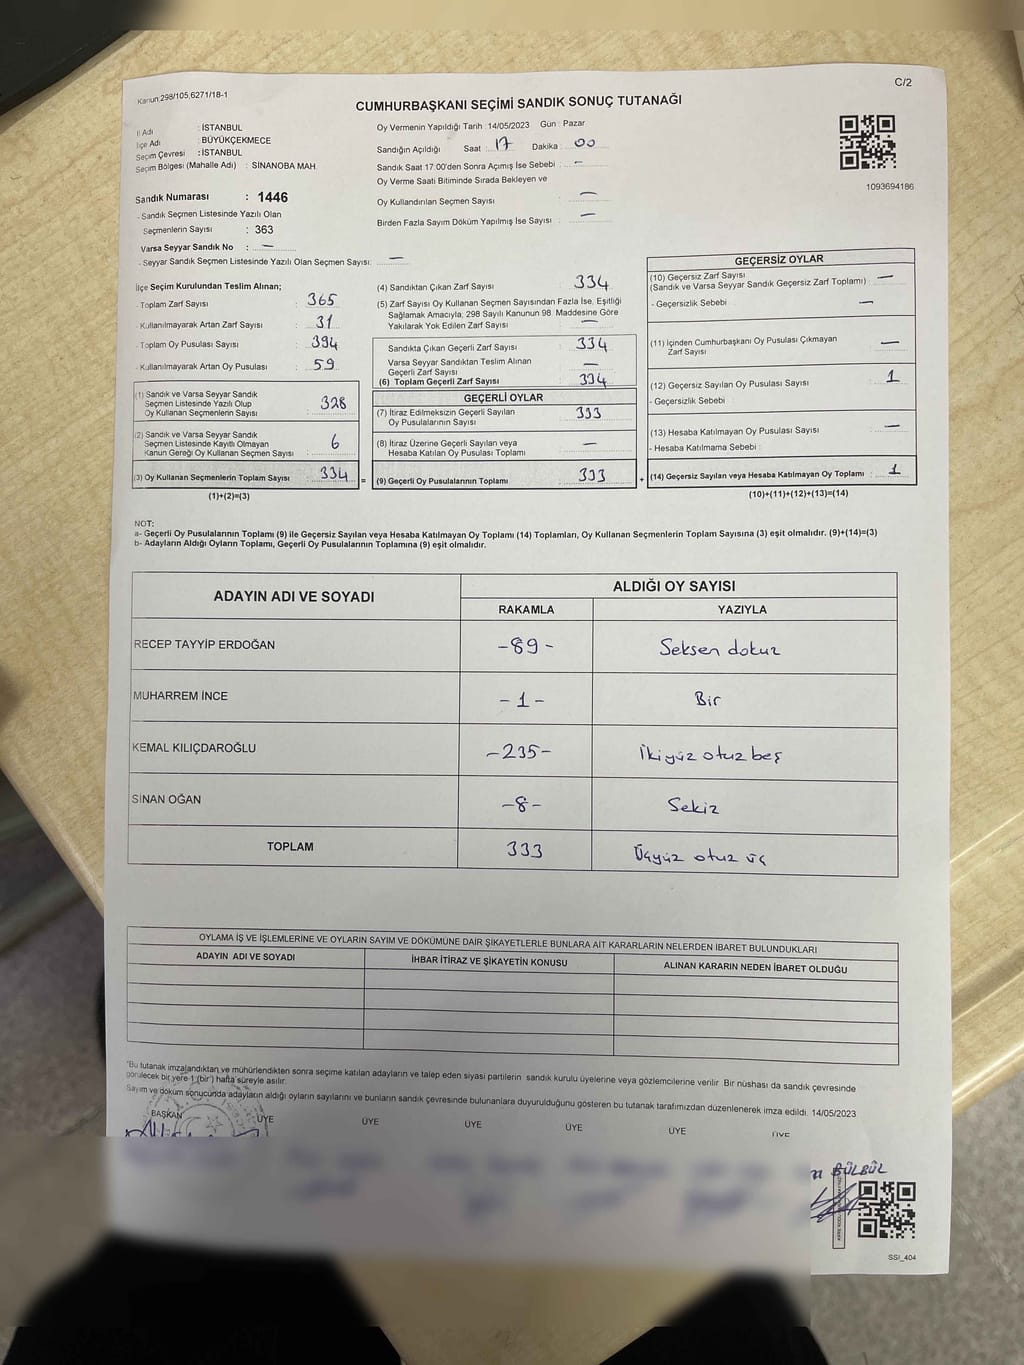 C/2
Kanun:298/105,6271/18-1
CUMHURBAŞKANI SEÇİMİ SANDIK SONUÇ TUTANAĞI
İl Adı : İSTANBUL
İlçe Adı : BÜYÜKÇEKMECE
Seçim Çevresi : İSTANBUL
Seçim Bölgesi (Mahalle Adı) : SİNANOBA MAH.
Sandık Numarası : 1446
- Sandık Seçmen Listesinde Yazılı Olan
Seçmenlerin Sayısı : 363
Varsa Seyyar Sandık No : —
- Seyyar Sandık Seçmen Listesinde Yazılı Olan Seçmen Sayısı: —
Oy Vermenin Yapıldığı Tarih :14/05/2023 Gün : Pazar
Sandığın Açıldığı Saat : 17 Dakika : 00
Sandık Saat 17:00'den Sonra Açımış İse Sebebi : -
Oy Verme Saati Bitiminde Sırada Bekleyen ve
Oy Kullandırılan Seçmen Sayısı : —
Birden Fazla Sayım Döküm Yapılmış İse Sayısı : —
1093694186
İlçe Seçim Kurulundan Teslim Alınan;
- Toplam Zarf Sayısı : 365
- Kullanılmayarak Artan Zarf Sayısı : 31
- Toplam Oy Pusulası Sayısı : 394
- Kullanılmayarak Artan Oy Pusulası : 59
(1) Sandık ve Varsa Seyyar Sandık
Seçmen Listesinde Yazılı Olup
Oy Kullanan Seçmenlerin Sayısı : 328
(2) Sandık ve Varsa Seyyar Sandık
Seçmen Listesinde Kayıtlı Olmayan
Kanun Gereği Oy Kullanan Seçmen Sayısı : 6
(3) Oy Kullanan Seçmenlerin Toplam Sayısı : 334 =
(1)+(2)=(3)
(4) Sandıktan Çıkan Zarf Sayısı : 334
(5) Zarf Sayısı Oy Kullanan Seçmen Sayısından Fazla İse, Eşitliği
Sağlamak Amacıyla; 298 Sayılı Kanunun 98. Maddesine Göre
Yakılarak Yok Edilen Zarf Sayısı : —
Sandıkta Çıkan Geçerli Zarf Sayısı : 334
Varsa Seyyar Sandıktan Teslim Alınan
Geçerli Zarf Sayısı : —
(6) Toplam Geçerli Zarf Sayısı : 334
GEÇERLİ OYLAR
(7) İtiraz Edilmeksizin Geçerli Sayılan
Oy Pusulalarının Sayısı : 333
(8) İtiraz Üzerine Geçerli Sayılan veya
Hesaba Katılan Oy Pusulası Toplamı : —
(9) Geçerli Oy Pusulalarının Toplamı : 333 +
GEÇERSİZ OYLAR
(10) Geçersiz Zarf Sayısı
(Sandık ve Varsa Seyyar Sandık Geçersiz Zarf Toplamı) : —
- Geçersizlik Sebebi : —
(11) İçinden Cumhurbaşkanı Oy Pusulası Çıkmayan
Zarf Sayısı : —
(12) Geçersiz Sayılan Oy Pusulası Sayısı : 1
- Geçersizlik Sebebi :
(13) Hesaba Katılmayan Oy Pusulası Sayısı : —
- Hesaba Katılmama Sebebi :
(14) Geçersiz Sayılan veya Hesaba Katılmayan Oy Toplamı : 1
(10)+(11)+(12)+(13)=(14)
NOT:
a- Geçerli Oy Pusulalarının Toplamı (9) ile Geçersiz Sayılan veya Hesaba Katılmayan Oy Toplamı (14) Toplamları, Oy Kullanan Seçmenlerin Toplam Sayısına (3) eşit olmalıdır. (9)+(14)=(3)
b- Adayların Aldığı Oyların Toplamı, Geçerli Oy Pusulalarının Toplamına (9) eşit olmalıdır.
ADAYIN ADI VE SOYADI ALDIĞI OY SAYISI
RAKAMLA YAZIYLA
RECEP TAYYİP ERDOĞAN -89- Seksen dokuz
MUHARREM İNCE -1- Bir
KEMAL KILIÇDAROĞLU -235- İkiyüz otuz beş
SİNAN OĞAN -8- Sekiz
TOPLAM 333 Üçyüz otuz üç
OYLAMA İŞ VE İŞLEMLERİNE VE OYLARIN SAYIM VE DÖKÜMÜNE DAİR ŞİKAYETLERLE BUNLARA AİT KARARLARIN NELERDEN İBARET BULUNDUKLARI
ADAYIN ADI VE SOYADI İHBAR İTİRAZ VE ŞİKAYETİN KONUSU ALINAN KARARIN NEDEN İBARET OLDUĞU
*Bu tutanak imzalandıktan ve mühürlendikten sonra seçime katılan adayların ve talep eden siyasi partilerin sandık kurulu üyelerine veya gözlemcilerine verilir. Bir nüshası da sandık çevresinde
görülecek bir yere 1 (bir) hafta süreyle asılır.
Sayım ve döküm sonucunda adayların aldığı oyların sayılarını ve bunların sandık çevresinde bulunanlara duyurulduğunu gösteren bu tutanak tarafımızdan düzenlenerek imza edildi. 14/05/2023
BAŞKAN ÜYE ÜYE ÜYE ÜYE ÜYE ÜYE
BÜLBÜL
SSI_404